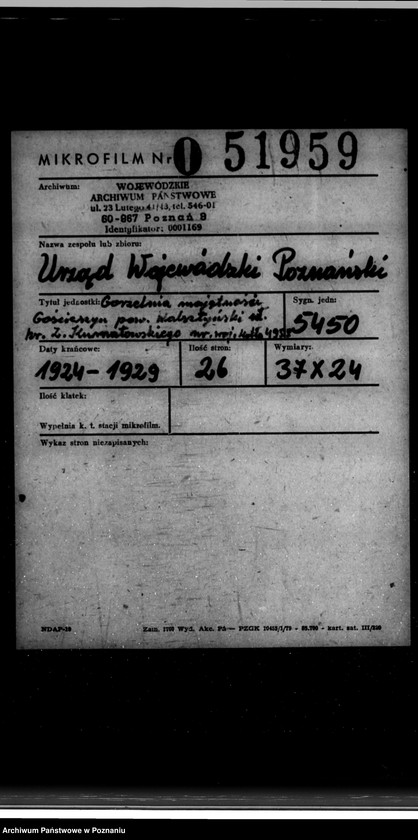 MIKROFILM Nr 0 51959
Archiwum: WOJEWÓDZKIE
ARCHIWUM PAŃSTWOWE
ul. 23 Lutego 41/43, tel. 546-01
60-967 Poznań 9
Identyfikator: 0001169
Nazwa zespołu lub zbioru:
Urząd Wojewódzki Poznański
Tytuł jednostki: Gorzelnia majętności
Gościeszyn pow. Wolsztyński wł.
hr. Z. Kurnatowskiego nr. woj.
Sygn. jedn:
5450
Daty krańcowe:
1924-1929
Ilość stron:
26
Wymiary:
37X24
Ilość klatek:
Wypełnia k. t. stacji mikrofilm.
Wykaz stron niezapisanych:
NDAP-10
Zam. Wyd. Akc. Pś — PZGK
kart. sat. III/220
Archiwum Państwowe w Poznaniu